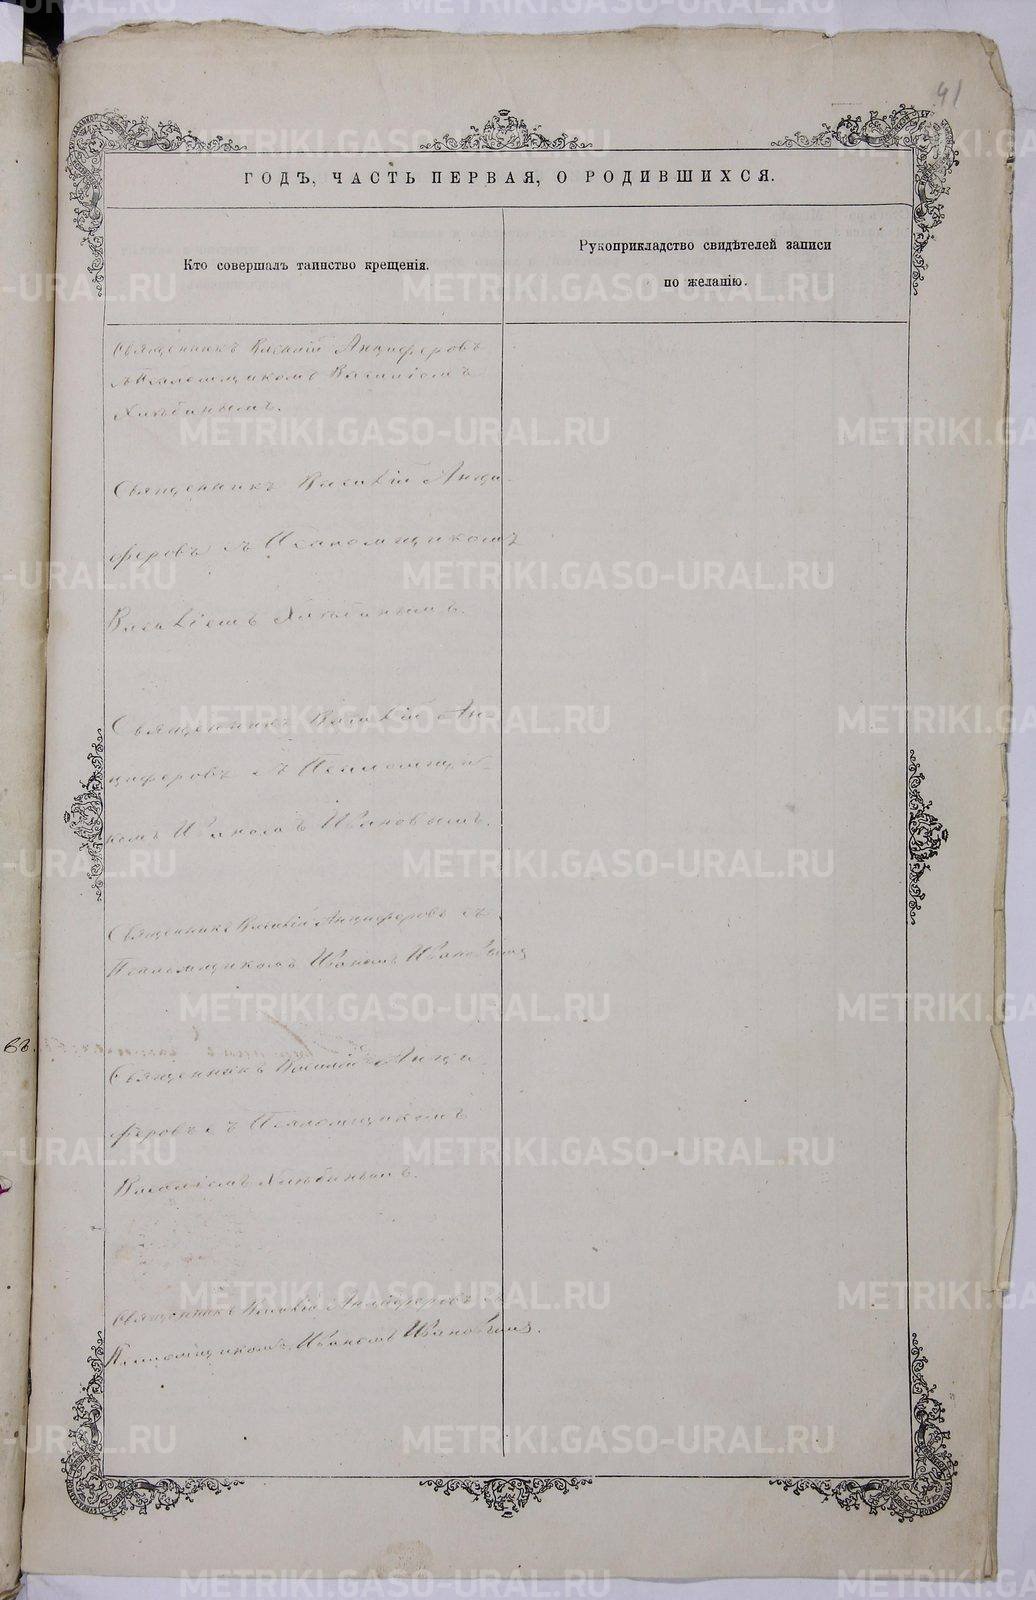 41
ГОДЪ, ЧАСТЬ ПЕРВАЯ, О РОДИВШИХСЯ.
Кто совершалъ таинство крещенія.
Рукоприкладство свидѣтелей записи
по желанію.
Священникъ Василій Анциферовъ
съ Псаломщикомъ Василіемъ
Хлѣбинымъ.
Священникъ Василій Анци-
феровъ съ Псаломщикомъ
Василіемъ Хлѣбинымъ.
Священникъ Василій Ан-
циферовъ съ Псаломщи-
комъ Иваномъ Ивановымъ.
Священникъ Василій Анциферовъ съ
Псаломщикомъ Иваномъ Ивановымъ
Священникъ Василій Анци-
феровъ съ Псаломщикомъ
Василіемъ Хлѣбинымъ.
Священникъ Василій Анциферовъ съ
Псаломщикомъ Иваномъ Ивановымъ.
METRIKI.GASO-URAL.RU